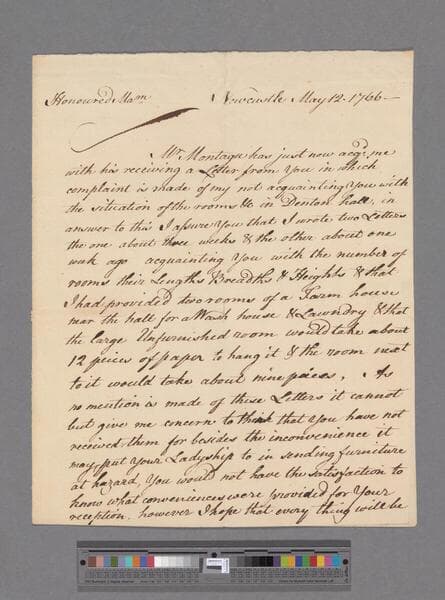 Honoured Mam Newcastle May 12. 1766 —
Mr Montagu has just now acqd. me
with his receiving a Letter from You in which
complaint is made of my not acquainting You with
the situation of the rooms &c in Denton hall, in
answer to this I assure You that I wrote two Letters
the one about three weeks & the other about one
week ago acquainting You with the number of
rooms their Lengths Breadths & Heights & that
I had provided two rooms of a Farm house
near the hall for a Wash house & Lawndry & that
the large Unfurnished room would take about
12 pieces of paper to hang it & the room next
to it would take about nine pieces. As
no mention is made of these Letters it cannot
but give me concern to think that You have not
received them for besides the inconvenience it
may put Your Ladyship to in sending furniture
at hazard, You would not have the Satisfaction to
know what conveniences were provided for Your
reception. however I hope that every thing will be